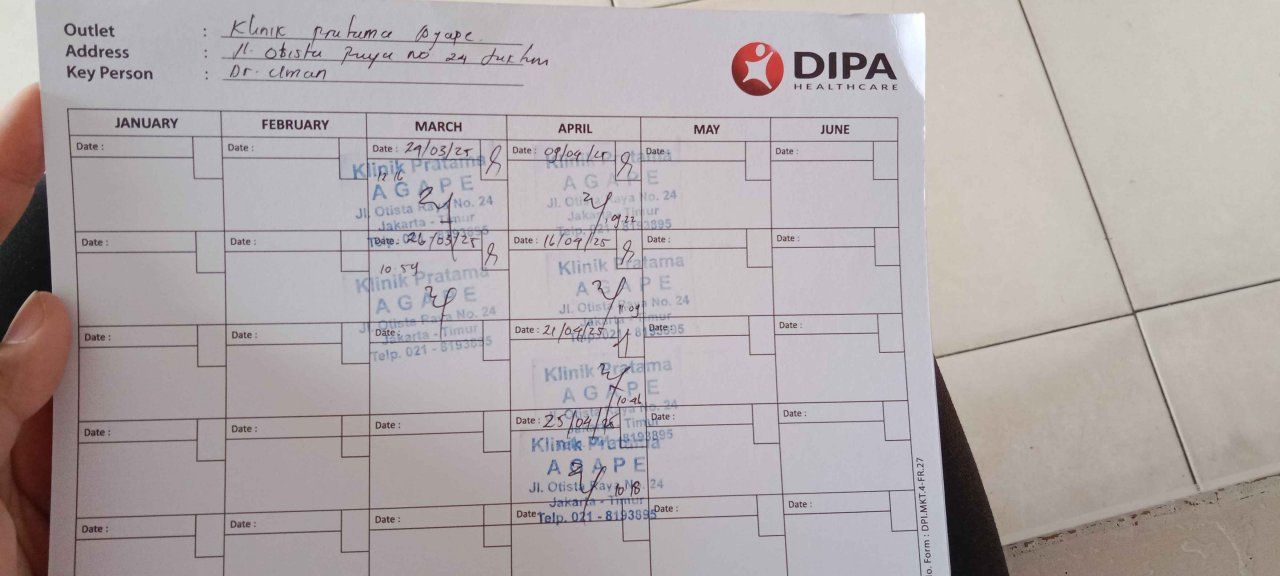 Outlet : Klinik Pratama Agape
Address : Jl. Otista Raya no 24 Jaktim
Key Person : Dr. Uman
DIPA
HEALTHCARE
JANUARY FEBRUARY MARCH APRIL MAY JUNE
Date : Date : Date : 24/03/25 Date : 09/04/25 Date : Date :
Klinik Pratama
12 16
AGAPE
Jl. Otista Raya No. 24
Jakarta - Timur
Telp. 021 - 8193895
Klinik Pratama
AGAPE
Jl. Otista Raya No. 24
Jakarta - Timur
Telp. 021 - 8193895
09.22
Date : Date : Date : 26/03/25 Date : 16/04/25 Date : Date :
10.59
Klinik Pratama
AGAPE
Jl. Otista Raya No. 24
Jakarta - Timur
Telp. 021 - 8193895
Klinik Pratama
AGAPE
Jl. Otista Raya No. 24
Jakarta - Timur
Telp. 021 - 8193895
11.09
Date : Date : Date : Date : 21/04/25 Date : Date :
Klinik Pratama
AGAPE
Jl. Otista Raya No. 24
Jakarta - Timur
8193895
10.46
Date : Date : Date : Date : 25/04/25 Date : Date :
Klinik Pratama
AGAPE
Jl. Otista Raya No. 24
10 18
Jakarta - Timur
Telp. 021 - 8193895
Date : Date : Date : Date : Date : Date :
No. Form : DPI.MKT.4-FR.27